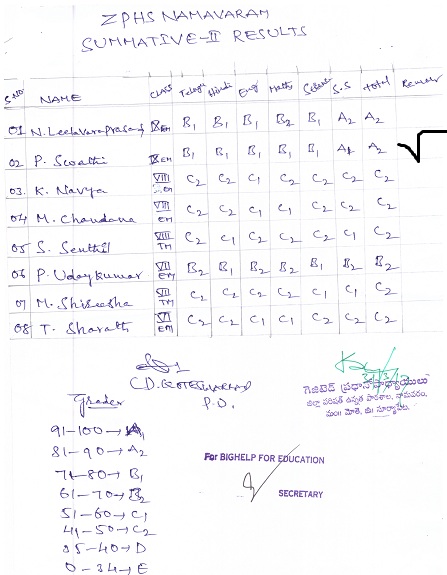 ZPHS NAMAVARAM
SUMMATIVE-II RESULTS
S.No NAME Class Telugu Hindi Eng Maths Science S.S Total Remar
01 N. Leelavaraprasad EM B1 B1 B1 B2 B1 A2 A2
02 P. Swathi EM B1 B1 B1 B1 B1 A2
03. K. Navya VIII EM C2 C2 C1 C2 C2 C2 C2
04 M. Chandana VIII EM C2 C2 C1 C1 C2 C2 C2
05 S. Senthil VIII TM C2 C1 C2 C1 C2 C2
06 P. Uday Kumar VII EM B2 B1 B2 B2 B1 B2 B2
07 M. Shireesha VII TM C2 C2 C2 C2 C1 C1 C2
08 T. Sharath VII EM C2 C2 C1 C1 C2 C2 C2
P.D.
గెజిటెడ్ ప్రధానోపాధ్యాయులు
జిల్లా పరిషత్ ఉన్నత పాఠశాల, నామవరం,
మం॥ మోతె, జి॥ సూర్యాపేట.
Grades
91-100→A1
81-90→A2
71-80→B1
61-70→B2
51-60→C1
41-50→C2
35-40→D
0-34→E
For BIGHELP FOR EDUCATION
SECRETARY